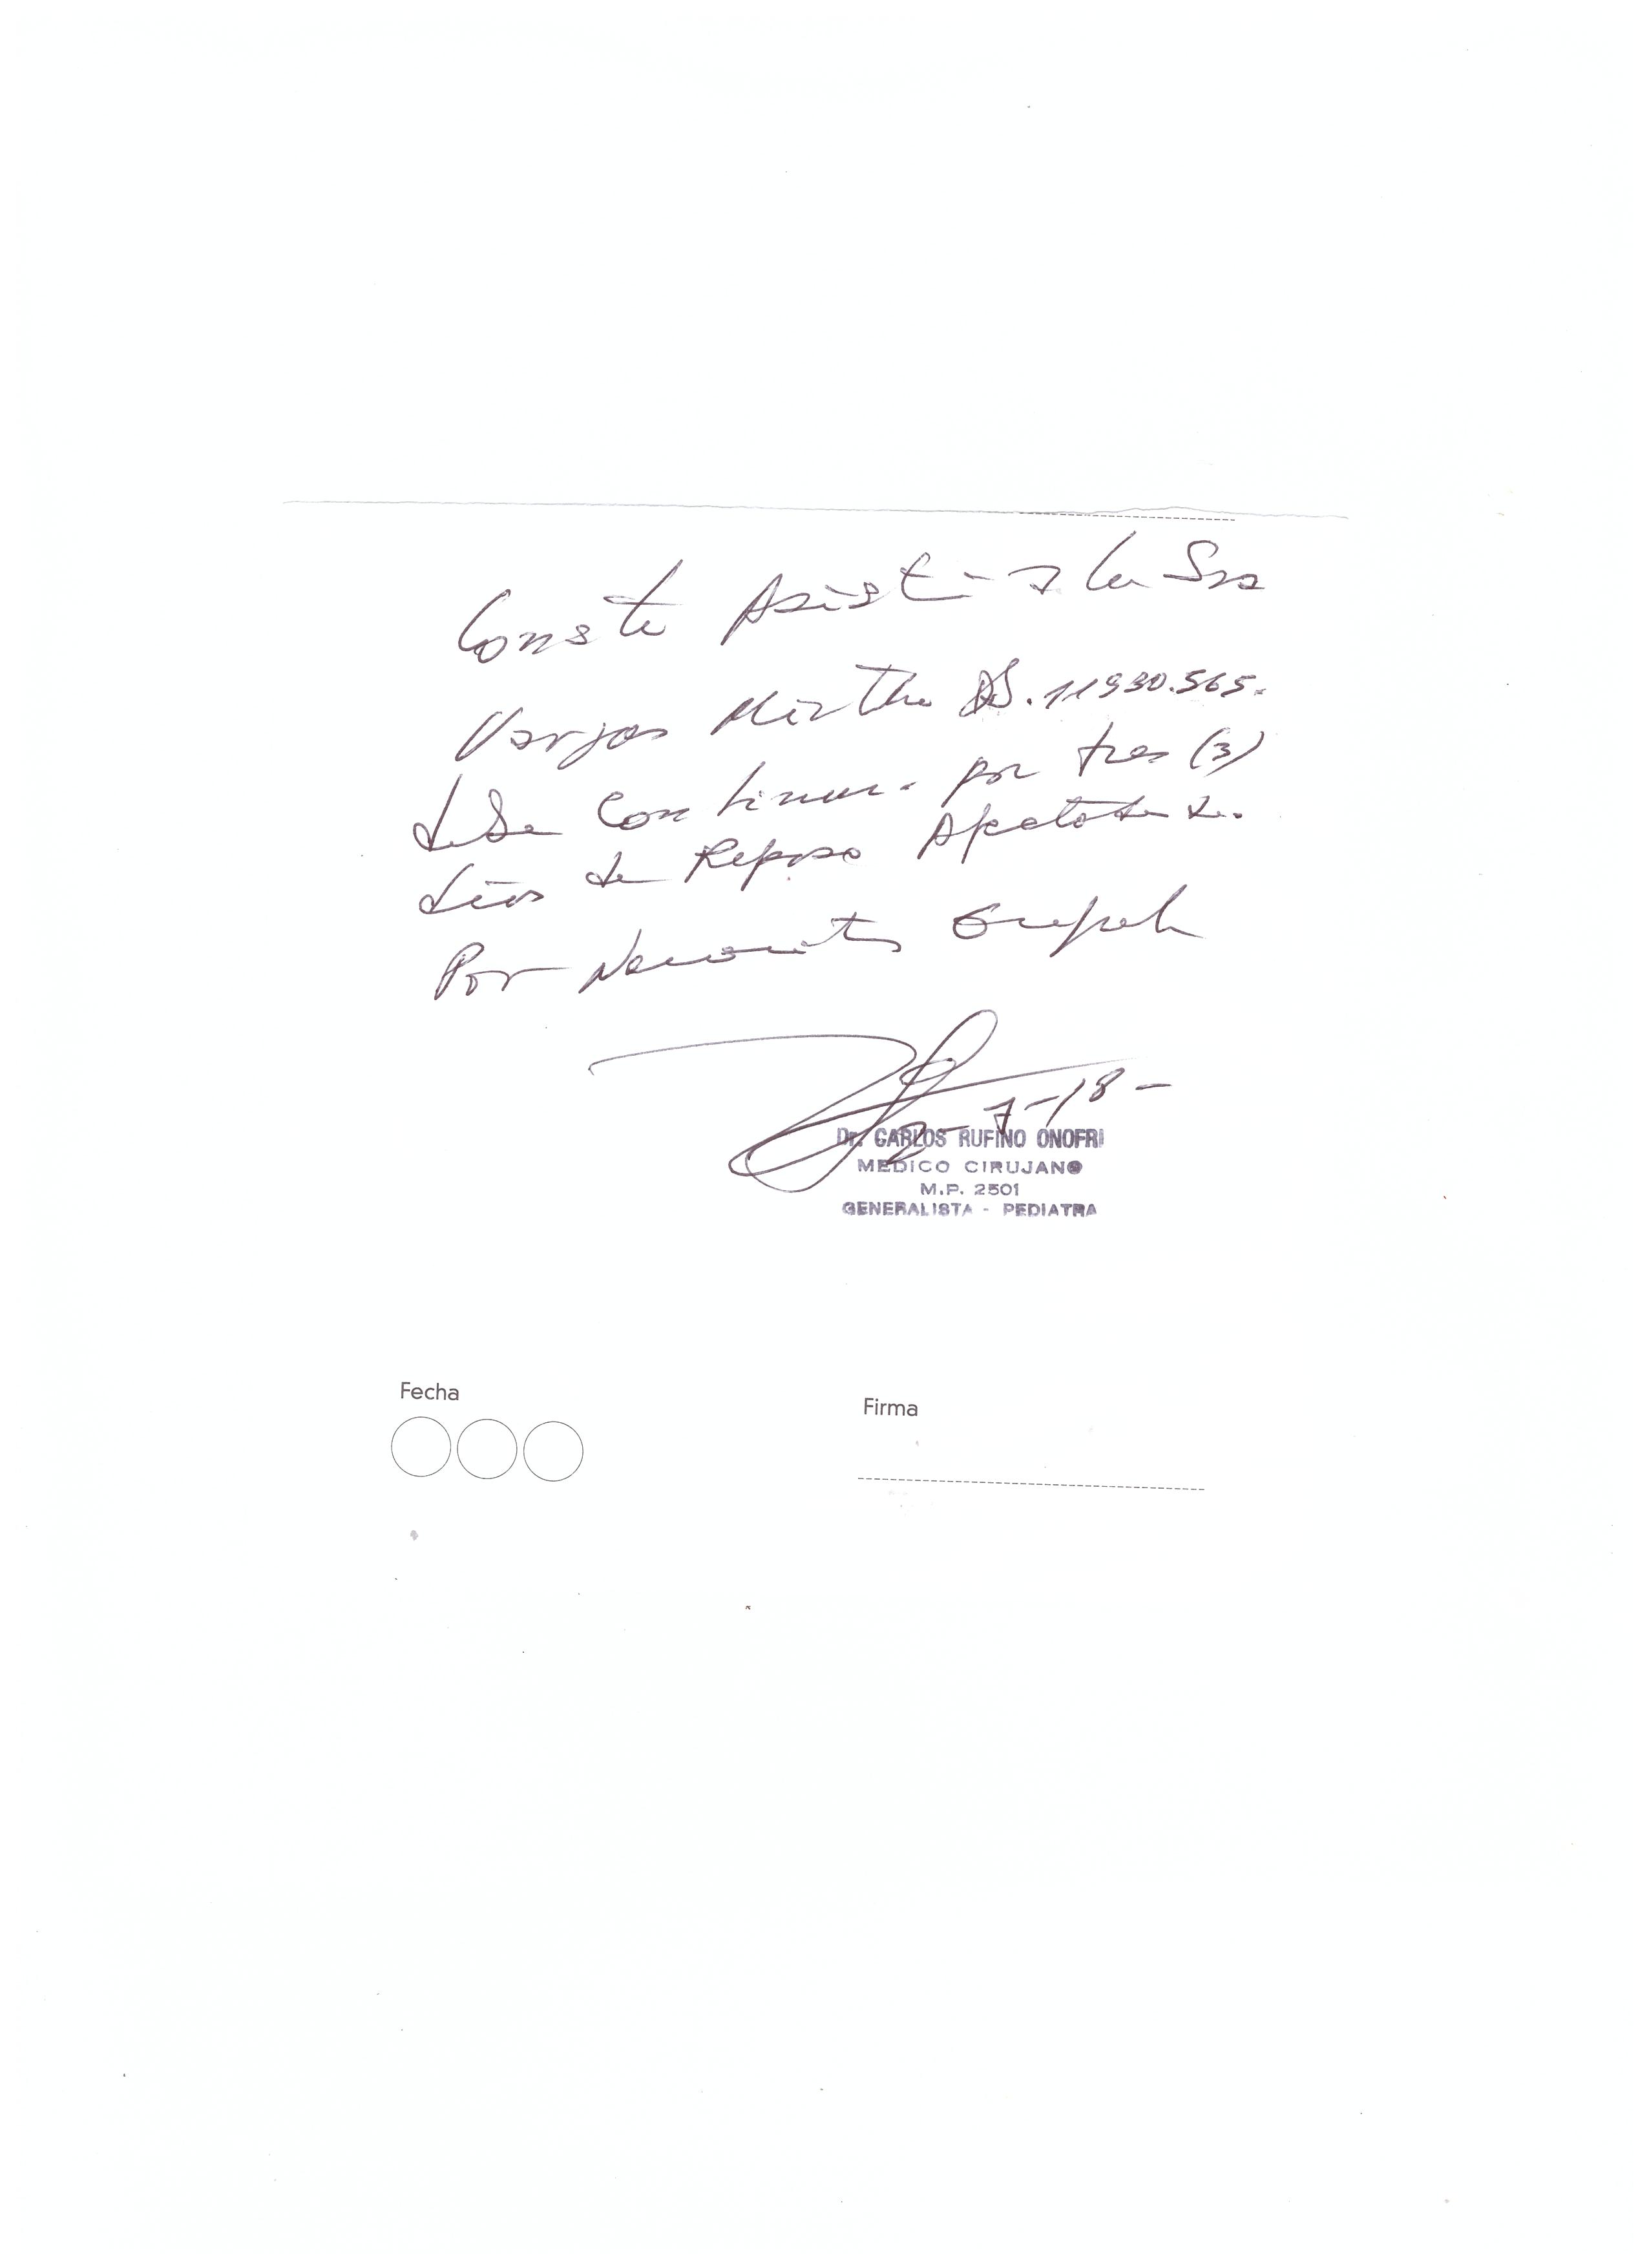 Conste Asisti a la Sra
Vargas Mirtha 11930.565.
debe continuar por tres (3)
días de Reposo
Por
2-7-18-
Dr. CARLOS RUFINO ONOFRI
MEDICO CIRUJANO
M.P. 2501
GENERALISTA - PEDIATRA
Fecha
Firma